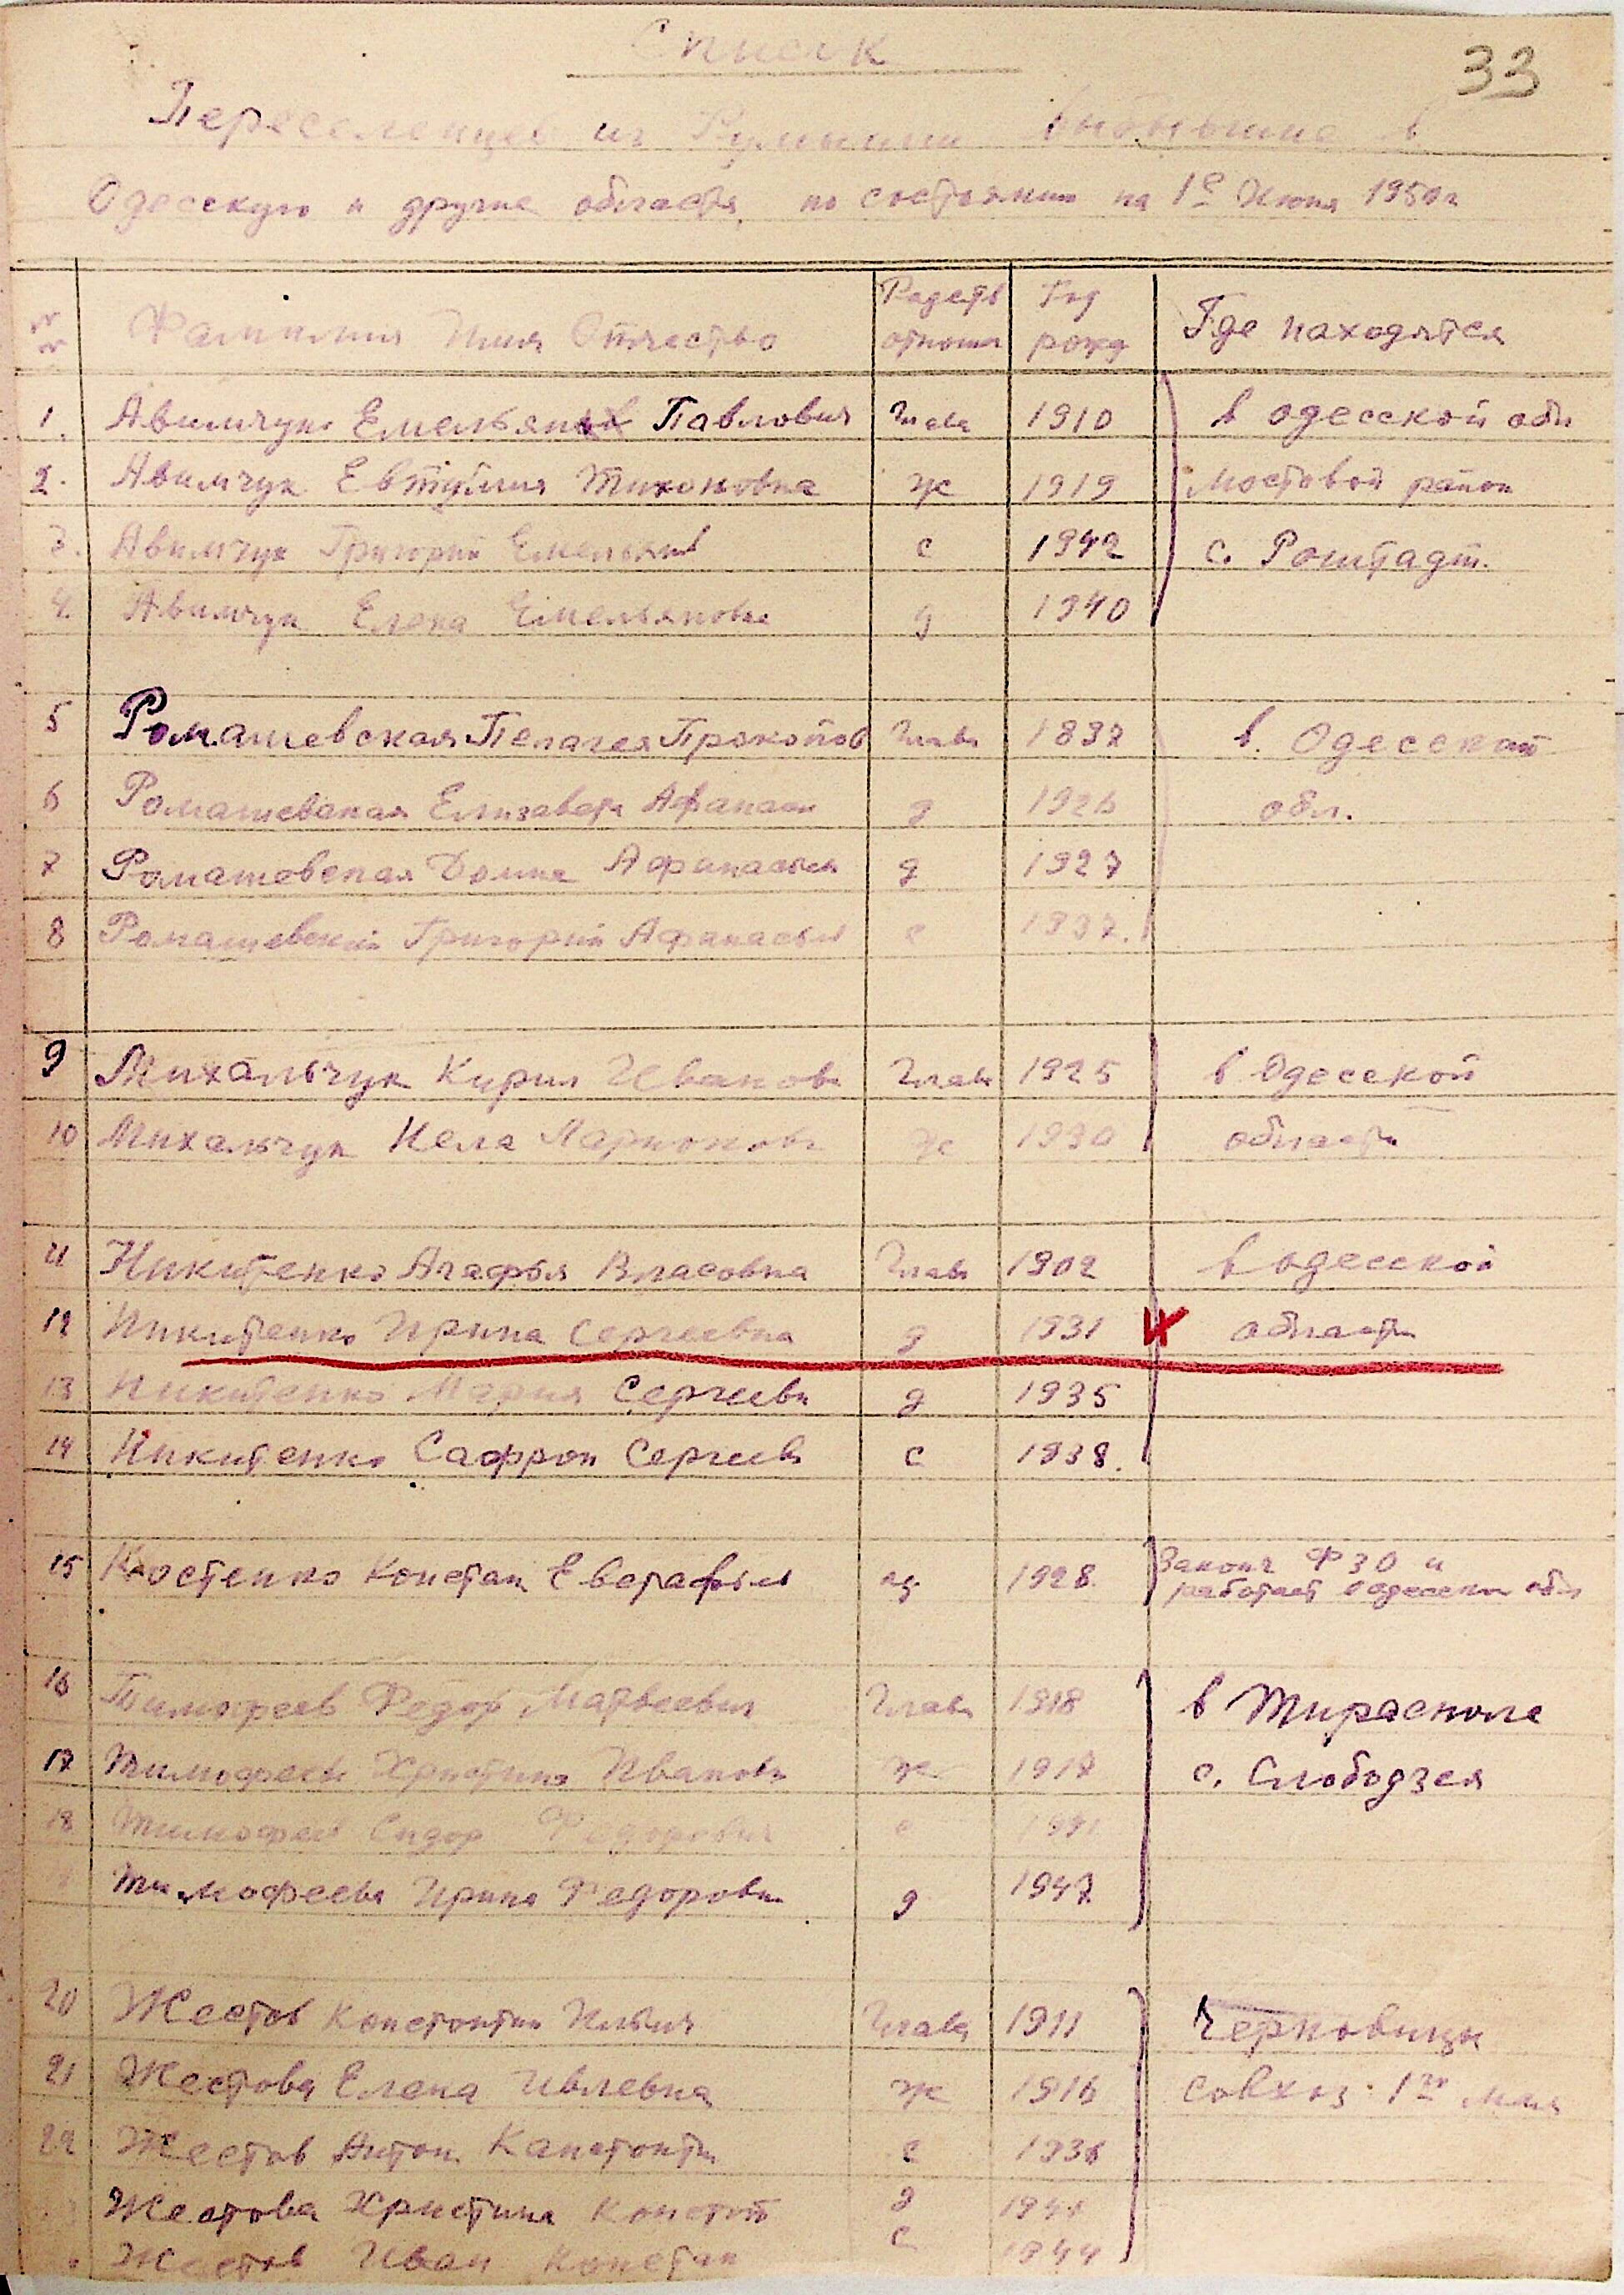 Список
33
Переселенцев из Румынии выбывшие в
Одесскую и другие области, по состоянию на 1е Июня 1950г
№№ Фамилия Имя Отчество Родств отнош Год рожд Где находятся
1. Авимчук Емельян Павлович Глава 1910 в одесской обл
2. Авимчук Евтумия Тихоновна ж 1919 Мостовой район
3. Авимчук Григорий Емельянов с 1942 с. Роштадт.
4. Авимчук Елена Емельяновна д 1940
5 Ромашевская Пелагея Прокопов Глава 1897 в. Одесской
6 Ромашевская Елизавета Афанаси д 1926 обл.
7 Ромашевская Домна Афанасьев д 1927
8 Ромашевский Григорий Афанасьев с 1937.
9 Михальчук Кирил Иванов Глава 1925 в Одесской
10 Михальчук Нела Ларионов ж 1930 области
11 Никитенко Агафья Власовна Глав 1902 в одесской
12 Никитенко Ирина Сергеевна д 1931 области
13 Никитенко Мария Сергеевн д 1935
14 Никитенко Сафрон Сергеев с 1938.
15 Костенко Констан Евстафьев 1928. Законч ФЗО и
работает в одесской обл
16 Тимофеев Федор Матвеевич Глава 1918 в Тирасполе
17 Тимофеев Христина Иванов ж 1917 с. Слободзея
18 Тимофеев Сидор Федорович с
Тимофеева Ирина Федоровн д 1947
20 Жестов Константин Ильич Глава 1911 Черновицы
21 Жестова Елена Ивлевна ж 1916 совхоз 1го мая
22 Жестов Антон Канстонти с 1936
Жестова Христина Констот д
Жестов Иван Констан с 1944